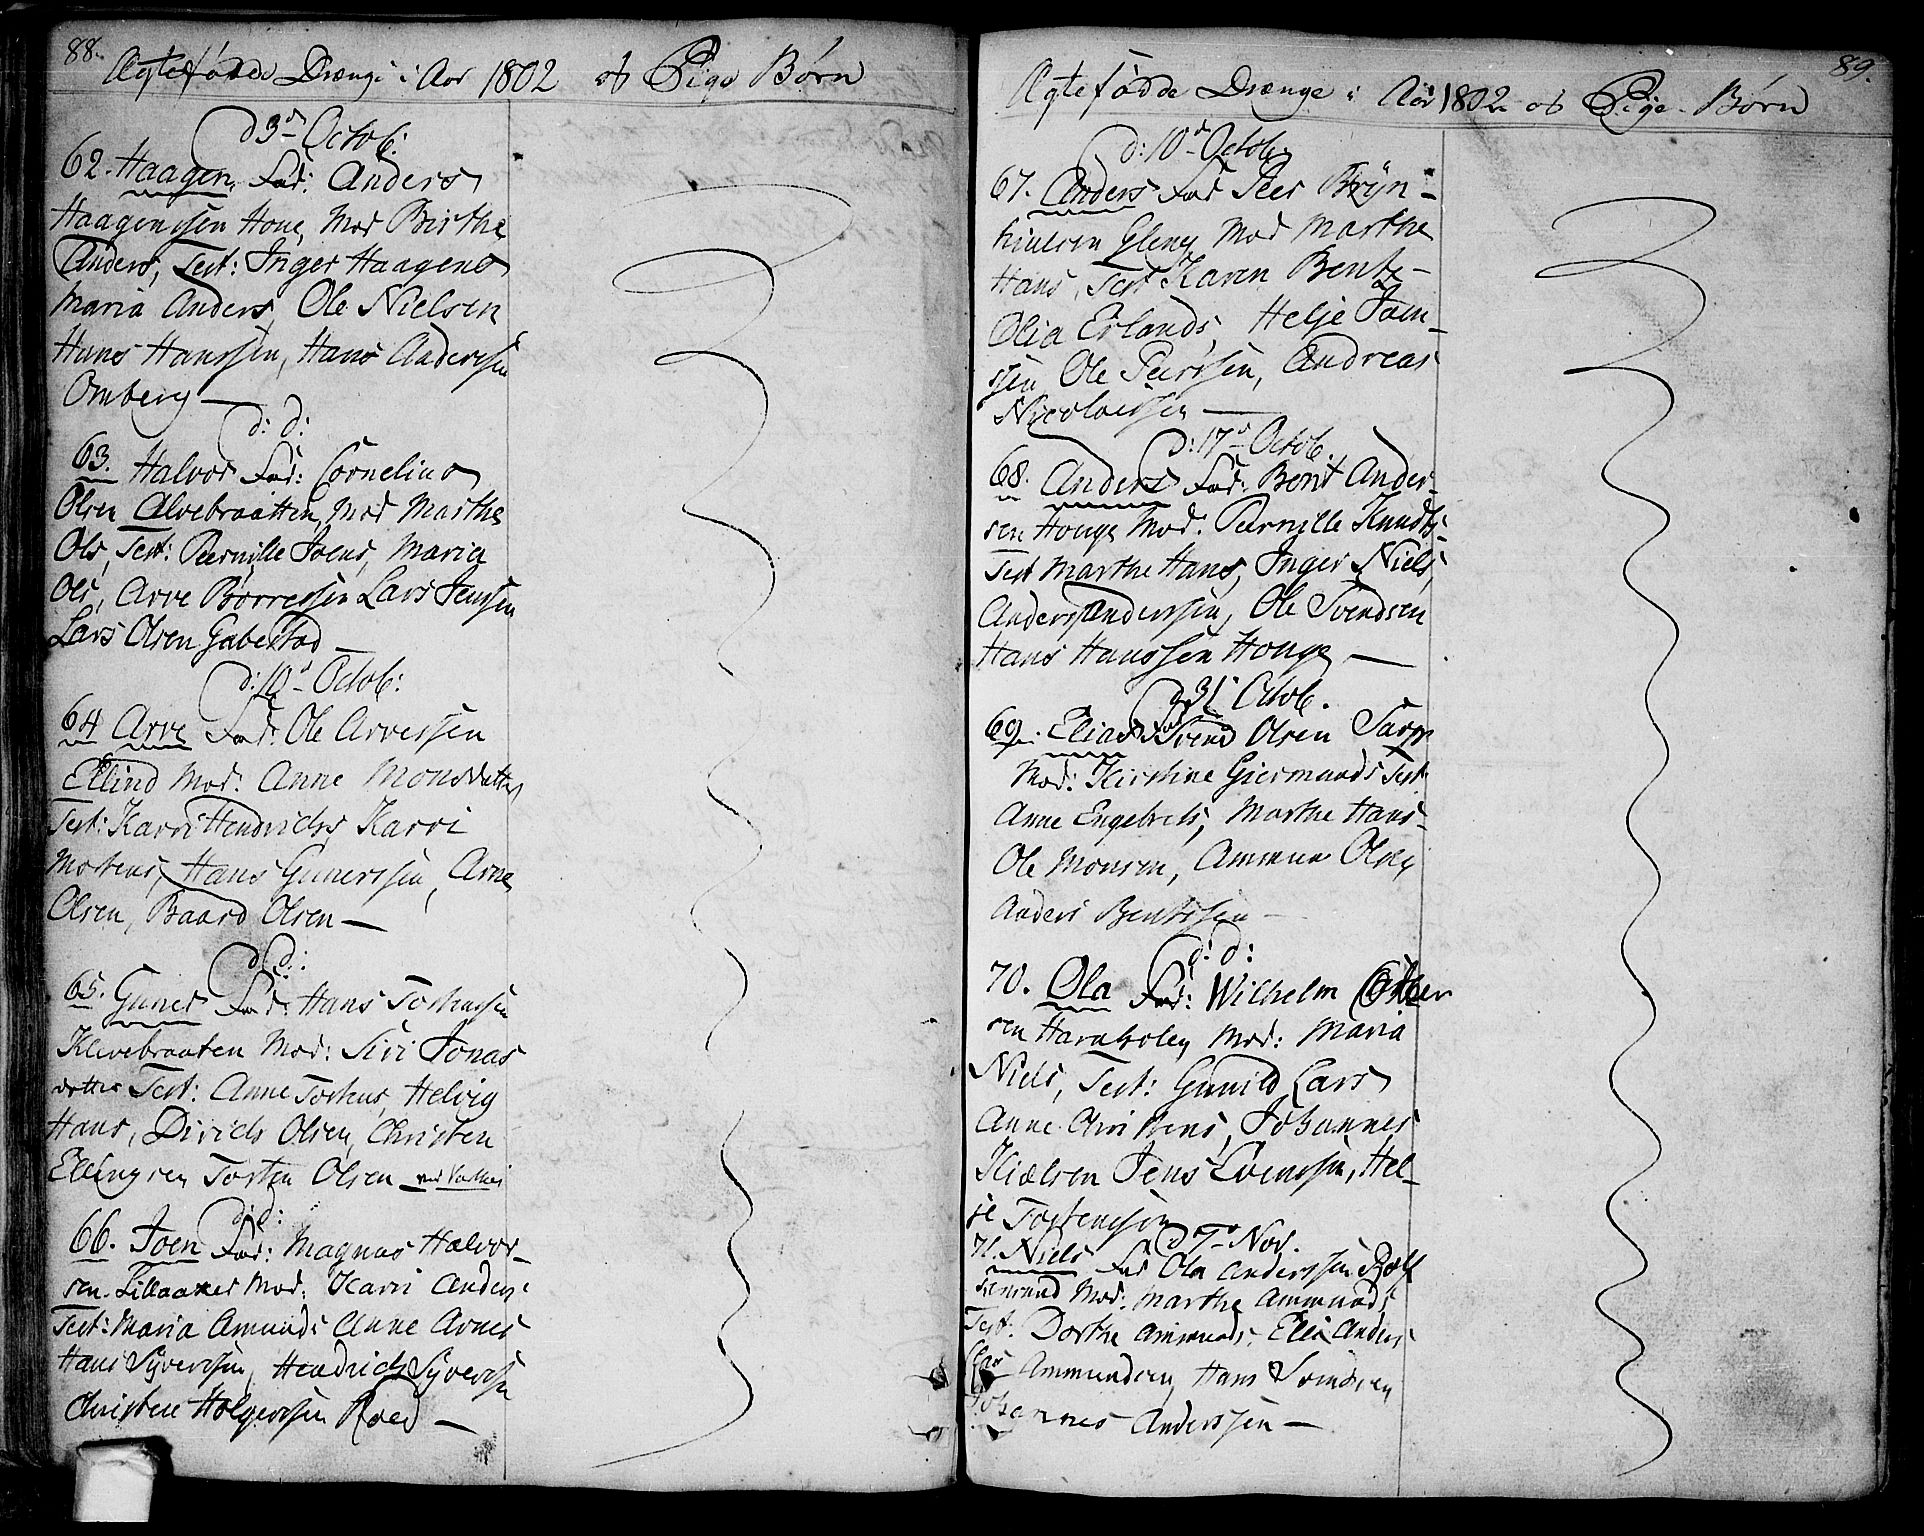 88.
Ægtefødde Drænge i Aar 1802 og Pige Børn
d 3d Octob:
62. Haagen, Fad: Anders
Haagenssen Houe, Mod Birthe
Anders, Test: Inger Haagens
Maria Anders Ole Nielsen
Hans Hanssen, Hans Anderssen
Omberg —
d: d:
63. Halvor Fad: Cornelius
Olsen Alvebraatten, Mod Marthe
Ols, Test: Peernille Joens, Maria
Ols, Arve Børressen Lars Jenssen
Lars Olsen Gabestad —
d: 10d Octob:
64 Arve Fad: Ole Arvessen
Ellind Mod: Anne Monsdatter
Test: Karri Hendrichs Karri
Mortens, Hans Gunerssen, Arne
Olsen, Baard Olsen —
d: d:
65. Guner Fad: Hans
Klevebraaten Mod: Siri Jonas
datter Test: Anne Helvig
Hans, Dirich Olsen, Christen
Ellingsen Torsten Olsen —
d: d:
66. Joen Fad: Magnus Halvor-
sen Lillaaker Mod: Karri Anders
Test: Maria Amunds Anne Arnes
Hans Syverssen, Hendrich Syverssen
Christen Holgerssen Roed —
89.
Ægtefødde Drænge i Aar 1802 og Pige-Børn
d: 10d Octob:
67. Anders Fad Peer Bryn-
hiulsen Gleng Mod Marthe
Hans, Test Karen Bents-
Olia Erlands, Helje Joen-
ssen Ole Peerssen, Andreas
Nicolaissen —
d: 17d Octob.
68. Anders Fad: Bent Ander-
sen Houge Mod. Peernille Knuds
Test Marthe Hans, Inger Niels,
Anders Anderssen, Ole Svendsen
Hans Hanssen Houge —
d 31 Octob.
69. Elias Fad Svend Olsen
Mod: Kirstine Giermunds Test
Anne Engebrets, Marthe Hans-
Ole Monsen, Ammun Olsen
Anders Bentssen —
d: d:
70. Ola Fad: Wilhelm
sen Mod: Maria
Niels, Test: Gunild Lars
Anne Christens, Johannes
Kiælsen Jens Evenssen, Hel-
je Torstenssen
d 7d Nov.
71. Niels Fad Ola Anderssen Rolf
Mod: Marthe Ammunds
Test. Dorthe Ammunds, Elli Anders
Ammundsen, Hans Svendsen
Johannes Anderssen —